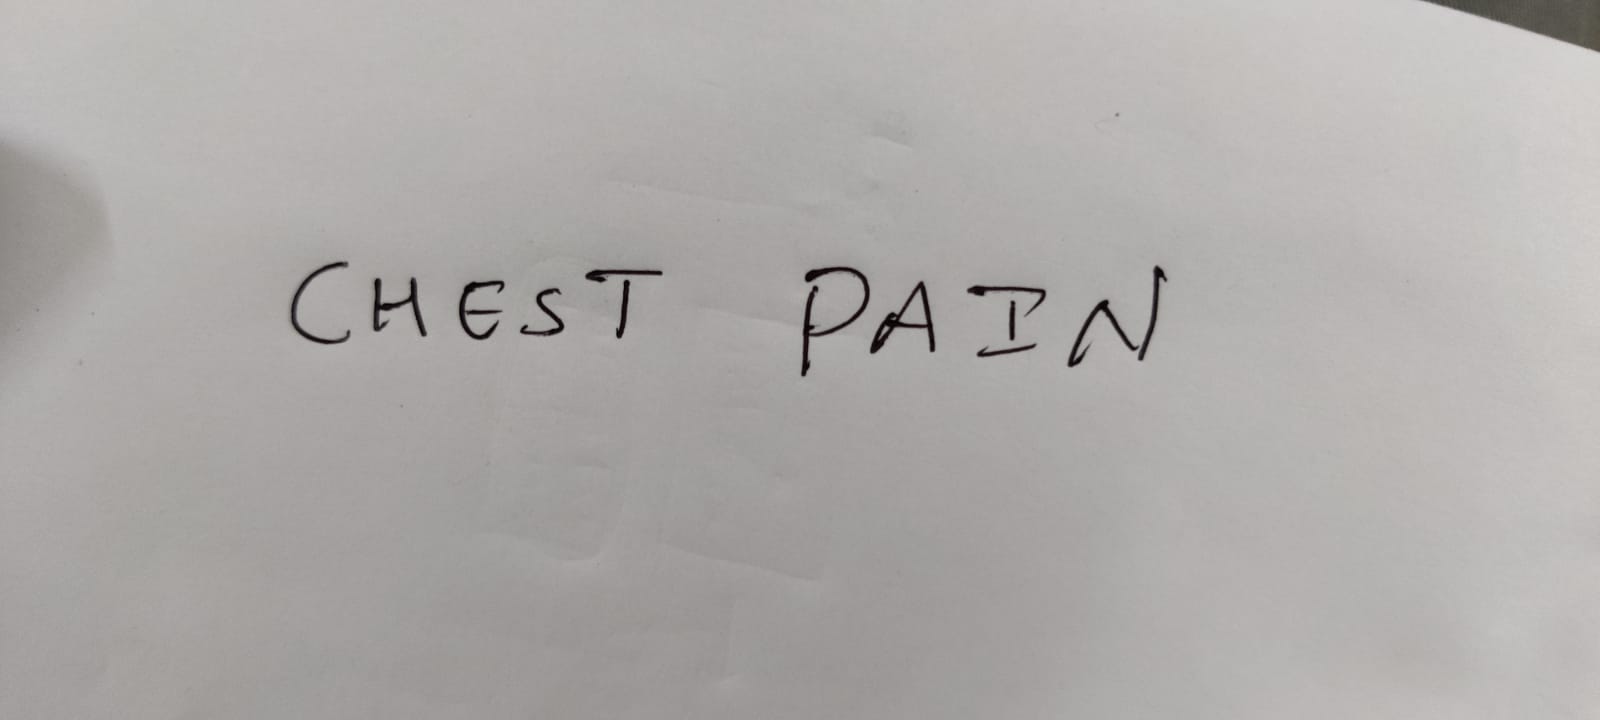 CHEST PAIN